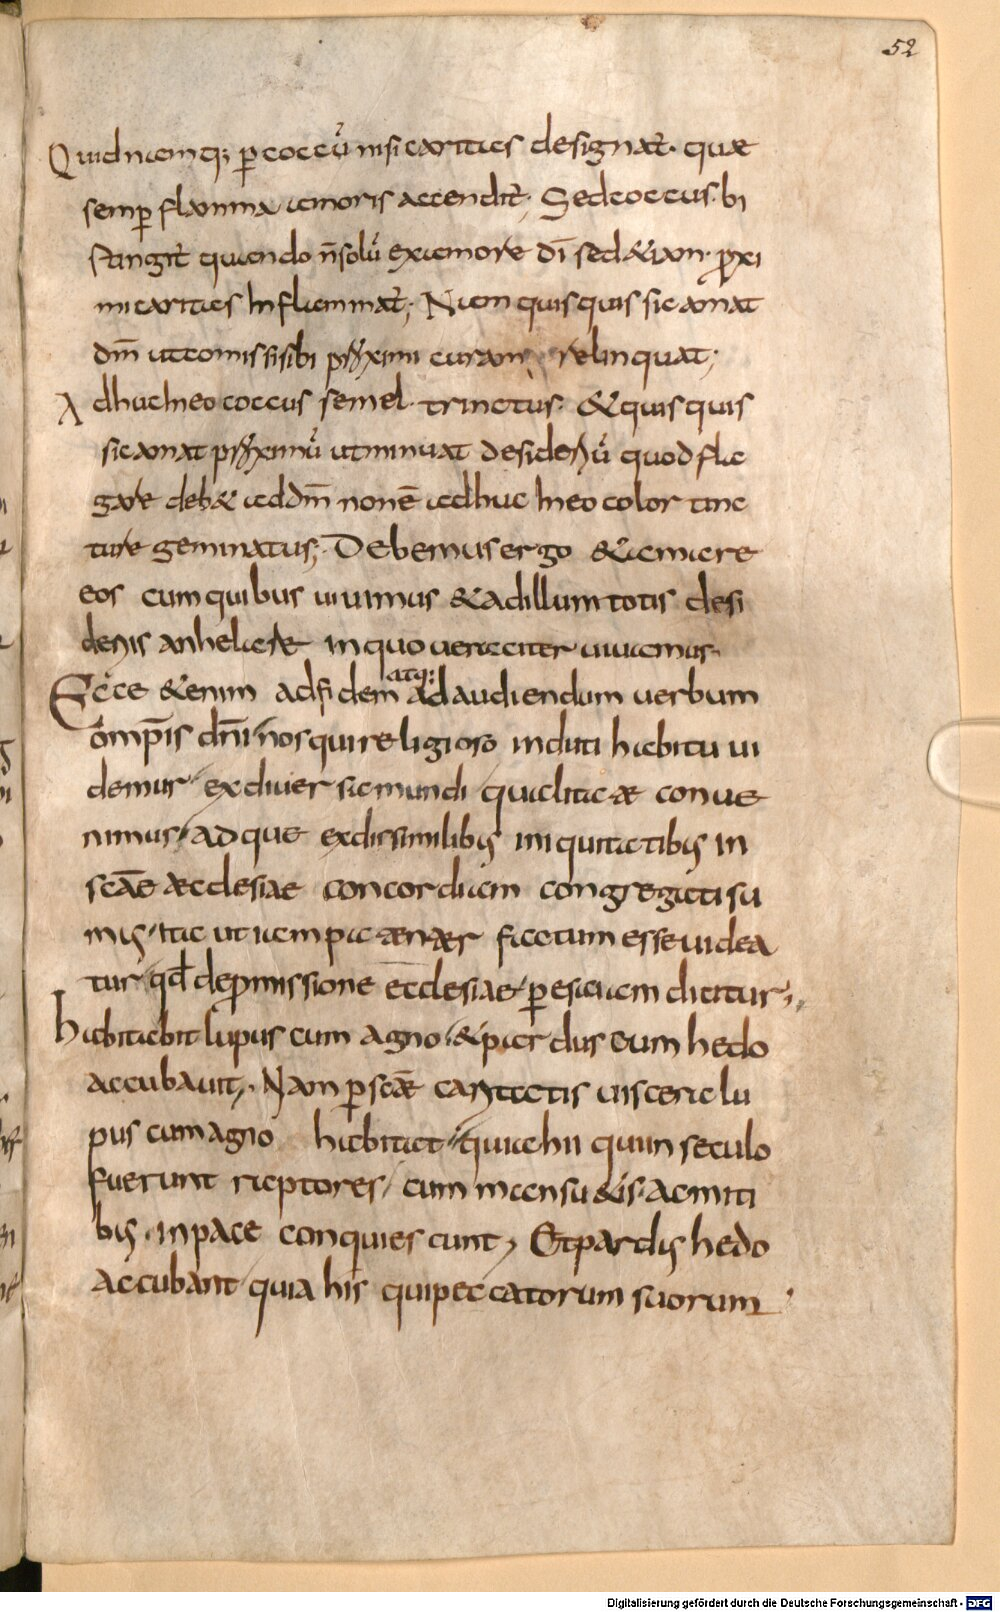 52
Quid namq; p coccū nisi caritas designat̄· quae
semp flamma amoris accendit̄; Sed coccus bi
stingit̄ quando ñ solū ex amore dī sed &iam proxi
mi caritas Inflammat̄; Nam quisquis sic amat
dm̄ ut comissi sibi proximi curam relinquat;
Adhuc Ineo coccus semel tinctus· & quisquis
sic amat proximū ut minuat desideriū quod fla
grare deb& ad dm̄ non ē adhuc Ineo color tinc
ture geminatus; Debemus ergo & amare
eos cum quibus uiuimus & ad illum totis desi
deriis anhelare in quo ueraciter uiuamus·
Ecce &enim ad fidem atq: ad audiendum uerbum
omp̄is dn̄i nos qui religioso induti habitu ui
demur ex diuersa mundi qualitate conue
nimus adque ex dissimilibus iniquitatibus in
scāe aecclesiae concordiam congregati su
mus Ita ut iam patenter factum esse uidea
tur qd̄ de promissione ecclesiae p esaiam dicitur;
habitabit lupus cum agno & pardus cum hedo
accubauit; Nam p scāe caritatis uiscera lu
pus cum agno habitat quia hii qui in seculo
fuerunt raptores cum mansu&is ac miti
bus in pace conquiescunt; Et pardus hedo
accubant quia his qui peccatorum suorum
Digitalisierung gefördert durch die Deutsche Forschungsgemeinschaft - DFG